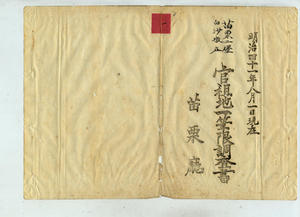 明治四十一年八月一日現在
官租地一筆限調查書
苗栗一堡
白沙墩庄
苗栗廳